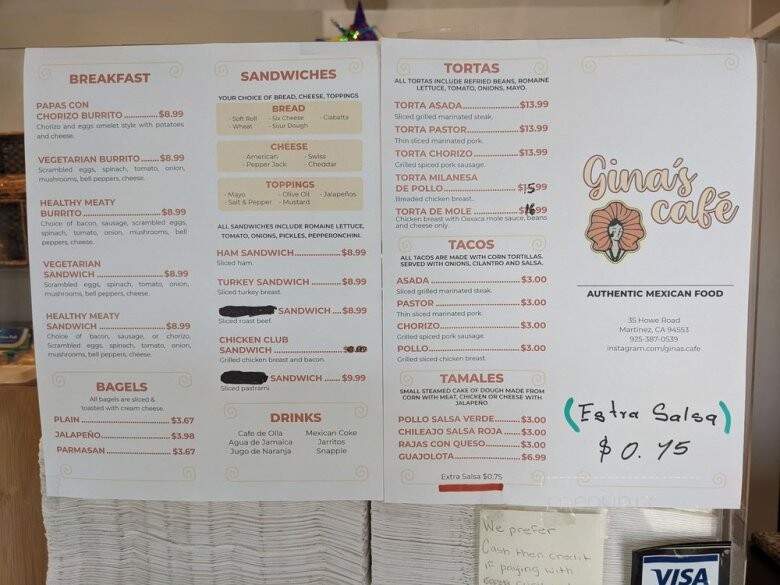 BREAKFAST
PAPAS CON
CHORIZO BURRITO ............... $8.99
Chorizo and eggs omelet style with potatoes
and cheese.
VEGETARIAN BURRITO ...... $8.99
Scrambled eggs, spinach, tomato, onion,
mushrooms, bell peppers, cheese.
HEALTHY MEATY
BURRITO ................................. $8.99
Choice of bacon, sausage, scrambled eggs,
spinach, tomato, onion, mushrooms, bell
peppers, cheese.
VEGETARIAN
SANDWICH ............................. $8.99
Scrambled eggs, spinach, tomato, onion,
mushrooms, bell peppers, cheese.
HEALTHY MEATY
SANDWICH ............................. $8.99
Choice of bacon, sausage, or chorizo.
Scrambled eggs, spinach, tomato, onion,
mushrooms, bell peppers, cheese.
BAGELS
All bagels are sliced &
toasted with cream cheese.
PLAIN .................................. $3.67
JALAPEÑO .......................... $3.98
PARMASAN ........................ $3.67
SANDWICHES
YOUR CHOICE OF BREAD, CHEESE, TOPPINGS
BREAD
- Soft Roll - Six Cheese - Ciabatta
- Wheat - Sour Dough
CHEESE
- American - Swiss
- Pepper Jack - Cheddar
TOPPINGS
- Mayo - Olive Oil - Jalapeños
- Salt & Pepper - Mustard
ALL SANDWICHES INCLUDE ROMAINE LETTUCE,
TOMATO, ONIONS, PICKLES, PEPPERONCHINI.
HAM SANDWICH .................. $8.99
Sliced ham.
TURKEY SANDWICH ........... $8.99
Sliced turkey breast.
SANDWICH .... $8.99
Sliced roast beef.
CHICKEN CLUB
SANDWICH
Grilled chicken breast and bacon.
SANDWICH ..... $9.99
Sliced pastrami.
DRINKS
Cafe de Olla Mexican Coke
Agua de Jamaica Jarritos
Jugo de Naranja Snapple
TORTAS
ALL TORTAS INCLUDE REFRIED BEANS, ROMAINE
LETTUCE, TOMATO, ONIONS, MAYO.
TORTA ASADA ...................... $13.99
Sliced grilled marinated steak.
TORTA PASTOR .................... $13.99
Thin sliced marinated pork.
TORTA CHORIZO .................. $13.99
Grilled spiced pork sausage.
TORTA MILANESA
DE POLLO ............................. $15.99
Breaded chicken breast.
TORTA DE MOLE .................. $16.99
Chicken breast with Oaxaca mole sauce, beans
and cheese only.
TACOS
ALL TACOS ARE MADE WITH CORN TORTILLAS.
SERVED WITH ONIONS, CILANTRO AND SALSA.
ASADA ................................... $3.00
Sliced grilled marinated steak.
PASTOR ................................. $3.00
Thin sliced marinated pork.
CHORIZO ............................... $3.00
Grilled spiced pork sausage.
POLLO .................................... $3.00
Grilled sliced chicken breast.
TAMALES
SMALL STEAMED CAKE OF DOUGH MADE FROM
CORN WITH MEAT, CHICKEN OR CHEESE WITH
JALAPEÑO
POLLO SALSA VERDE ........... $3.00
CHILEAJO SALSA ROJA ........ $3.00
RAJAS CON QUESO .............. $3.00
GUAJOLOTA .......................... $6.99
Extra Salsa $0.75
Gina's
café
AUTHENTIC MEXICAN FOOD
35 Howe Road
Martinez, CA 94553
925-387-0539
instagram.com/ginas.cafe
(Extra Salsa)
$0.75
We prefer
Cash then credit
if paying with
VISA